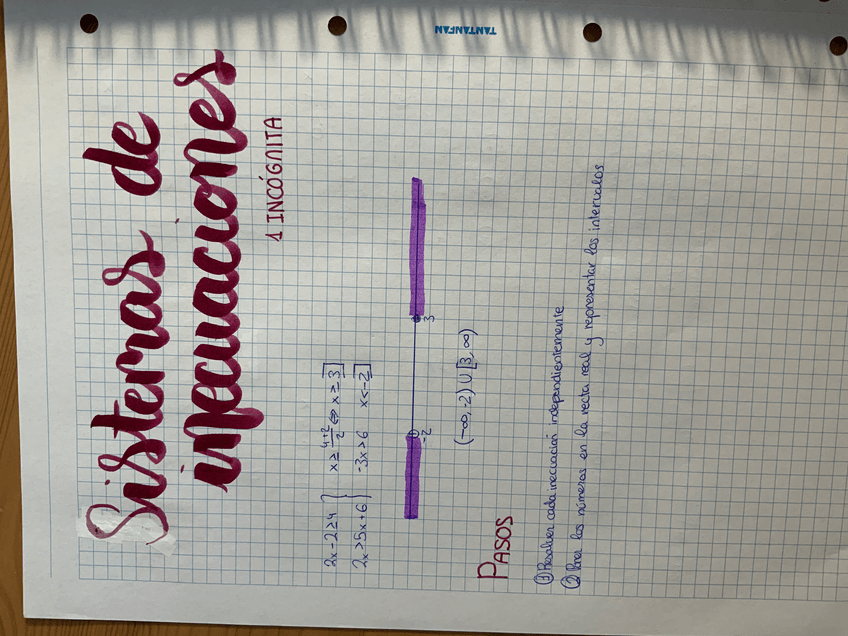 TANTANFAN
Sistemas de
inecuaciones
1 INCÓGNITA
2x-2≥4 } x≥ 4+2/2 ⇔ x≥3
2x>5x+6 } -3x>6 x<-2
-2 3
(-∞,-2) ∪ [3,∞)
PASOS
① Resolver cada inecuación independientemente
② Poner los números en la recta real y representar los intervalos